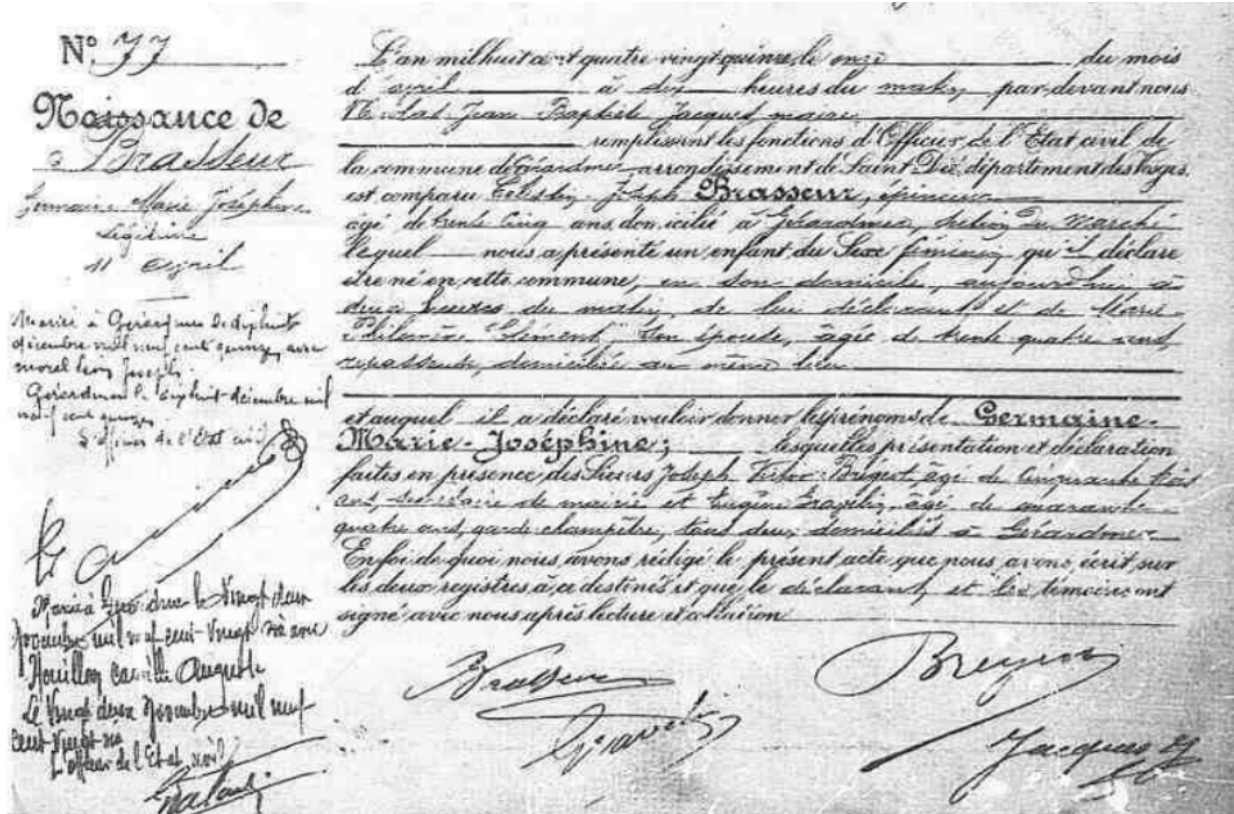 N° 77
Naissance de
Brasseur
Germaine Marie Joséphine
Légitime
11 avril
Mariée à Gérardmer le dix huit
décembre mil neuf cent quinze, avec
Morel Léon Joseph.
Gérardmer le dix huit décembre mil
neuf cent quinze
L'officier de l'Etat civil
Mariée à le vingt deux
novembre mil neuf cent vingt six avec
Camille Auguste
Le vingt deux novembre mil neuf
cent vingt six
L'officier de l'Etat civil
L'an mil huit cent quatre vingt quinze, le onze du mois
d'avril à dix heures du matin par-devant nous
Nicolas Jean Baptiste Jacquot maire
remplissant les fonctions d'Officier de l'Etat civil de
la commune de Gérardmer arrondissement de Saint Dié, département des Vosges.
est comparu Célestin Joseph Brasseur, épicier
âgé de trente cinq ans, domicilié à Gérardmer, section du Marché
lequel nous a présenté un enfant du Sexe féminin qu'il déclare
être né en cette commune, en son domicile, aujourd'hui à
deux heures du matin, de lui déclarant et de Marie
Philomène Clément, son épouse, âgée de trente quatre ans,
repasseuse, domiciliée au même lieu
et auquel il a déclaré vouloir donner les prénoms de Germaine-
Marie-Joséphine; lesquelles présentation et déclaration
faites en présence des Sieurs Joseph Victor âgé de cinquante trois
ans, secrétaire de mairie et Eugène Gravelin, âgé de quarante
quatre ans, garde champêtre, tous deux domiciliés à Gérardmer
En foi de quoi nous avons rédigé le présent acte que nous avons écrit sur
les deux registres à ce destinés et que le déclarant et les témoins ont
signé avec nous après lecture et collation
Brasseur